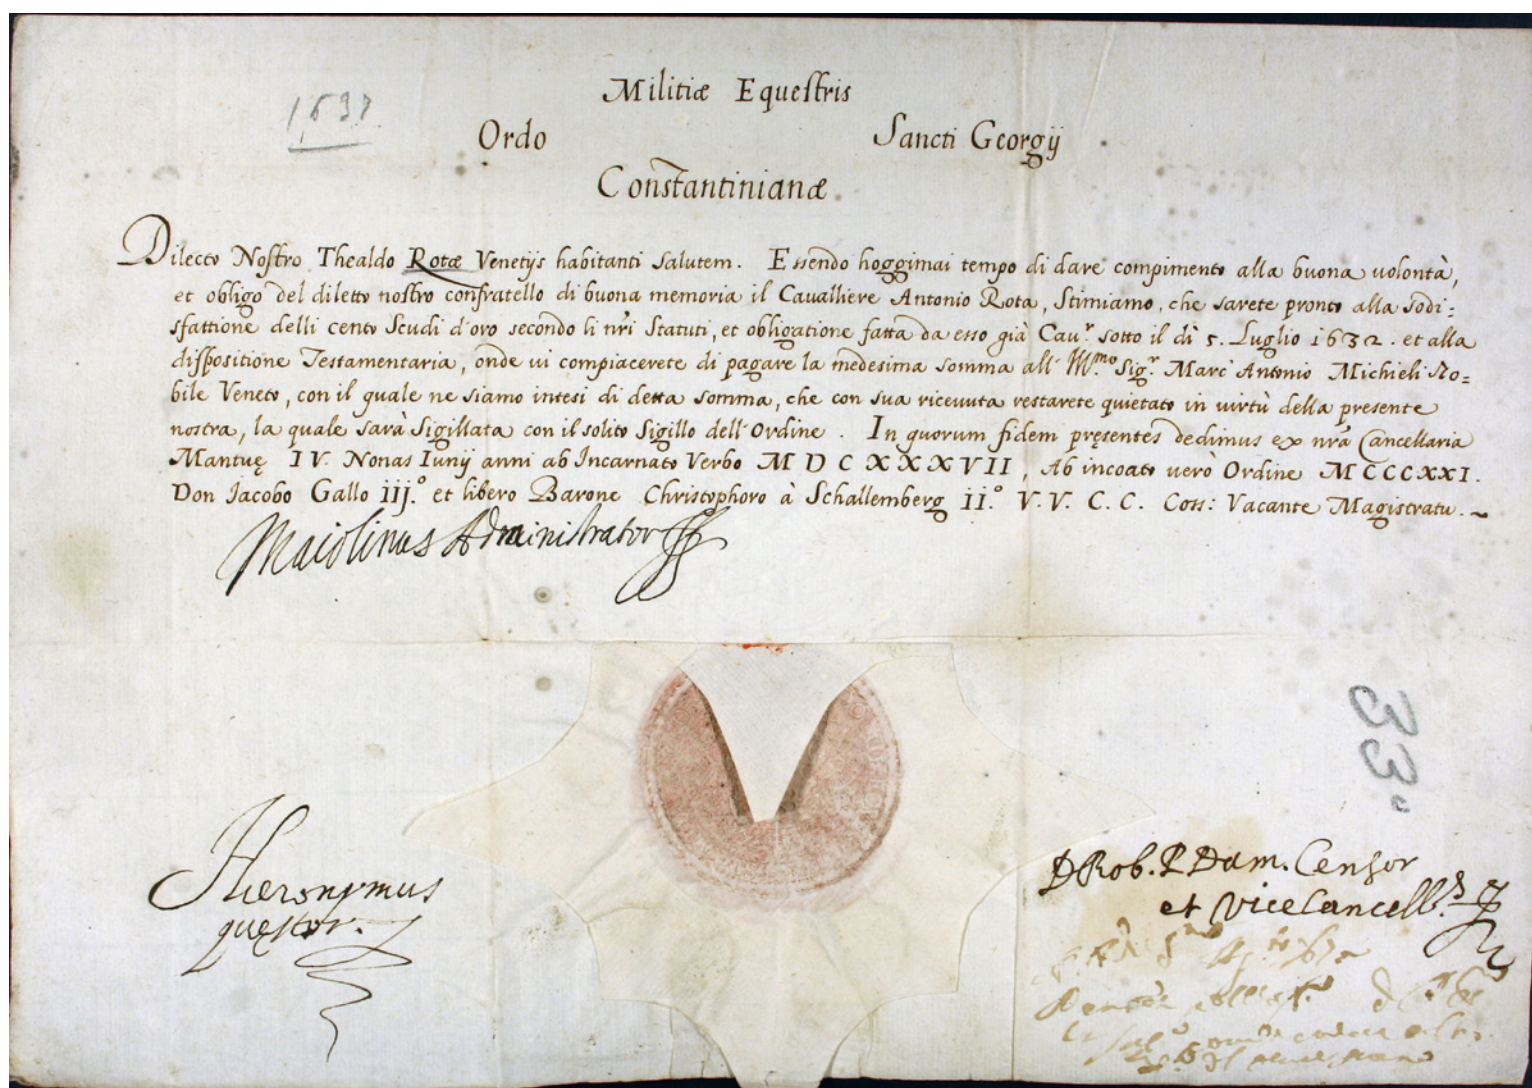 1637
Militiæ Equestris
Ordo Sancti Georgij
Constantinianæ
Dilecto Nostro Thealdo Rotæ Venetijs habitanti salutem. Essendo hoggimai tempo di dare compimento alla buona uolontà,
et obligo del diletto nostro confratello di buona memoria il Caualliere Antonio Rota, Stimiamo, che sarete pronto alla sodi:
sfattione delli cento Scudi d'oro secondo li nr̃i Statuti, et obligatione fatta da esso già Cau.r sotto il dì 5. Luglio 1632. et alla
dispositione Testamentaria, onde ui compiacerete di pagare la medesima somma all' Ill.mo Sig.r Marc' Antonio Michieli No=
bile Veneto, con il quale ne siamo intesi di detta somma, che con sua riceuuta restarete quietato in uirtù della presente
nostra, la quale sarà Sigillata con il solito Sigillo dell'Ordine. In quorum fidem pręsentes dedimus ex nr̃a Cancellaria
Mantuę IV. Nonas Iunij anni ab Incarnato Verbo MDCXXXVII, Ab incoato uerò Ordine MCCCXXI.
Don Jacobo Gallo iij.° et libero Barone Christophoro à Schallemberg ii.° V.V. C.C. Coss: Vacante Magistratu.
Maiolinus Administrator
33
Hieronymus
quęstor.
D Rob. P Dam. Censor
et ViceCancell.s